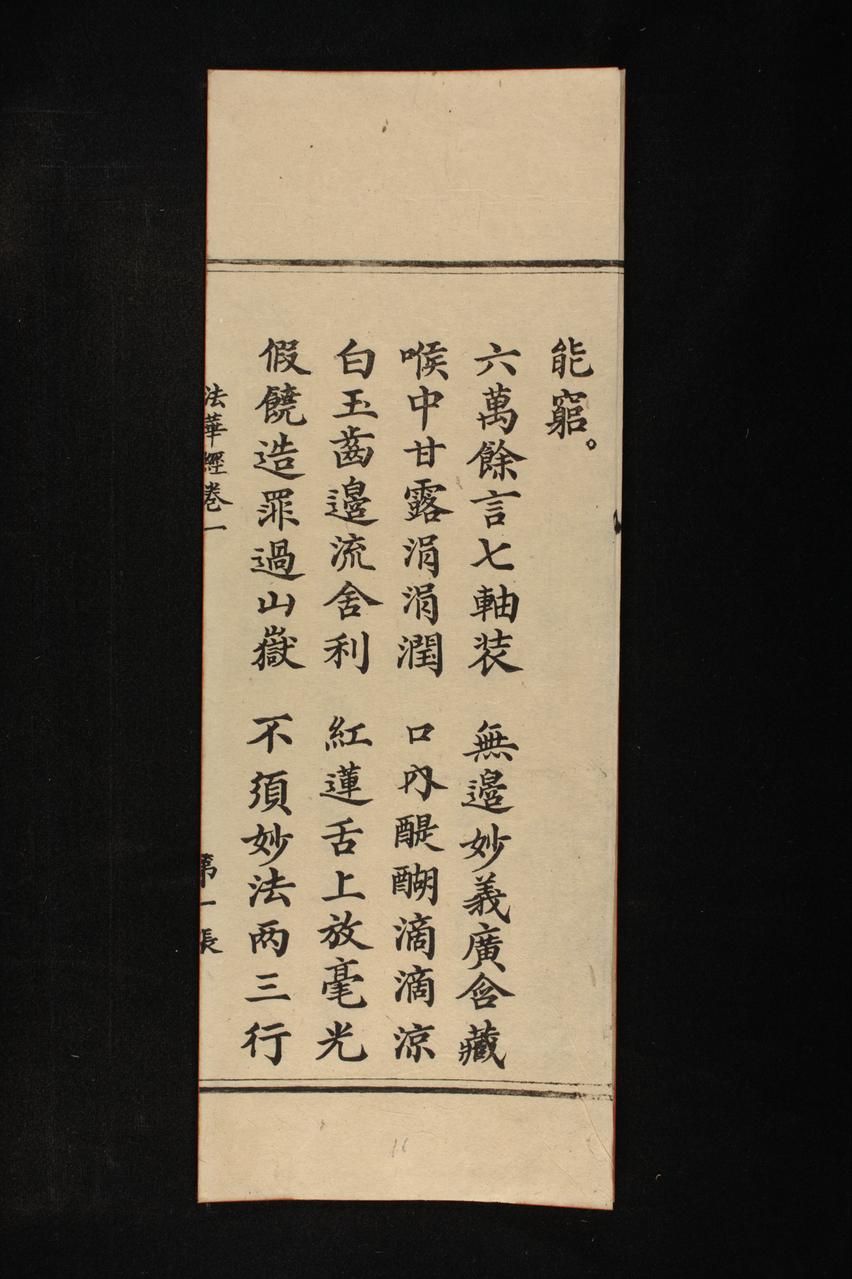 能窮。
六萬餘言七軸装　無邉妙義廣含藏
喉中甘露涓涓潤　口內醍醐滴滴涼
白玉齒邉流舍利　紅蓮舌上放毫光
假饒造罪過山嶽　不須妙法两三行
法華經卷一　第一張
16